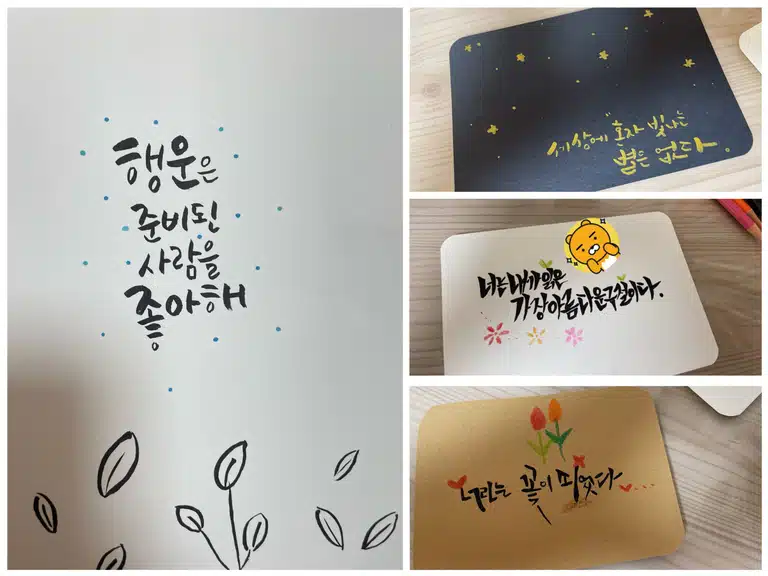 행운은
준비된
사람을
좋아해
세상에 혼자 빛나는
별은 없다.
너는 내가 읽은
가장 아름다운 구절이다.
너라는 꽃이 피었다...